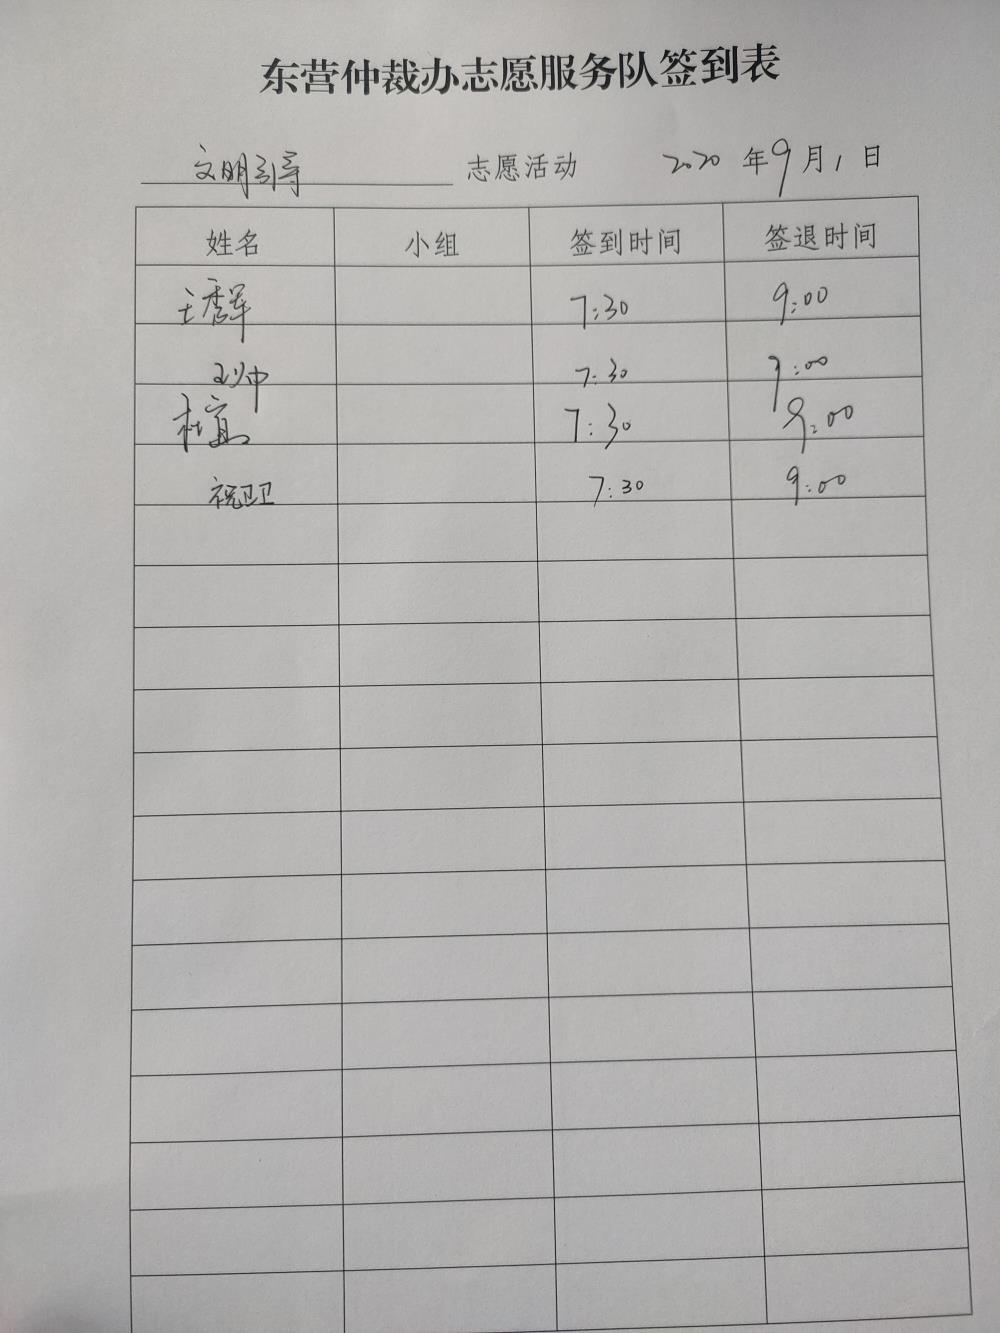 东营仲裁办志愿服务队签到表
文明引导 志愿活动 2020 年 9 月 1 日
姓名 小组 签到时间 签退时间
王秀军 7:30 9:00
7:30 9:00
杜宜 7:30 9:00
祝卫卫 7:30 9:00